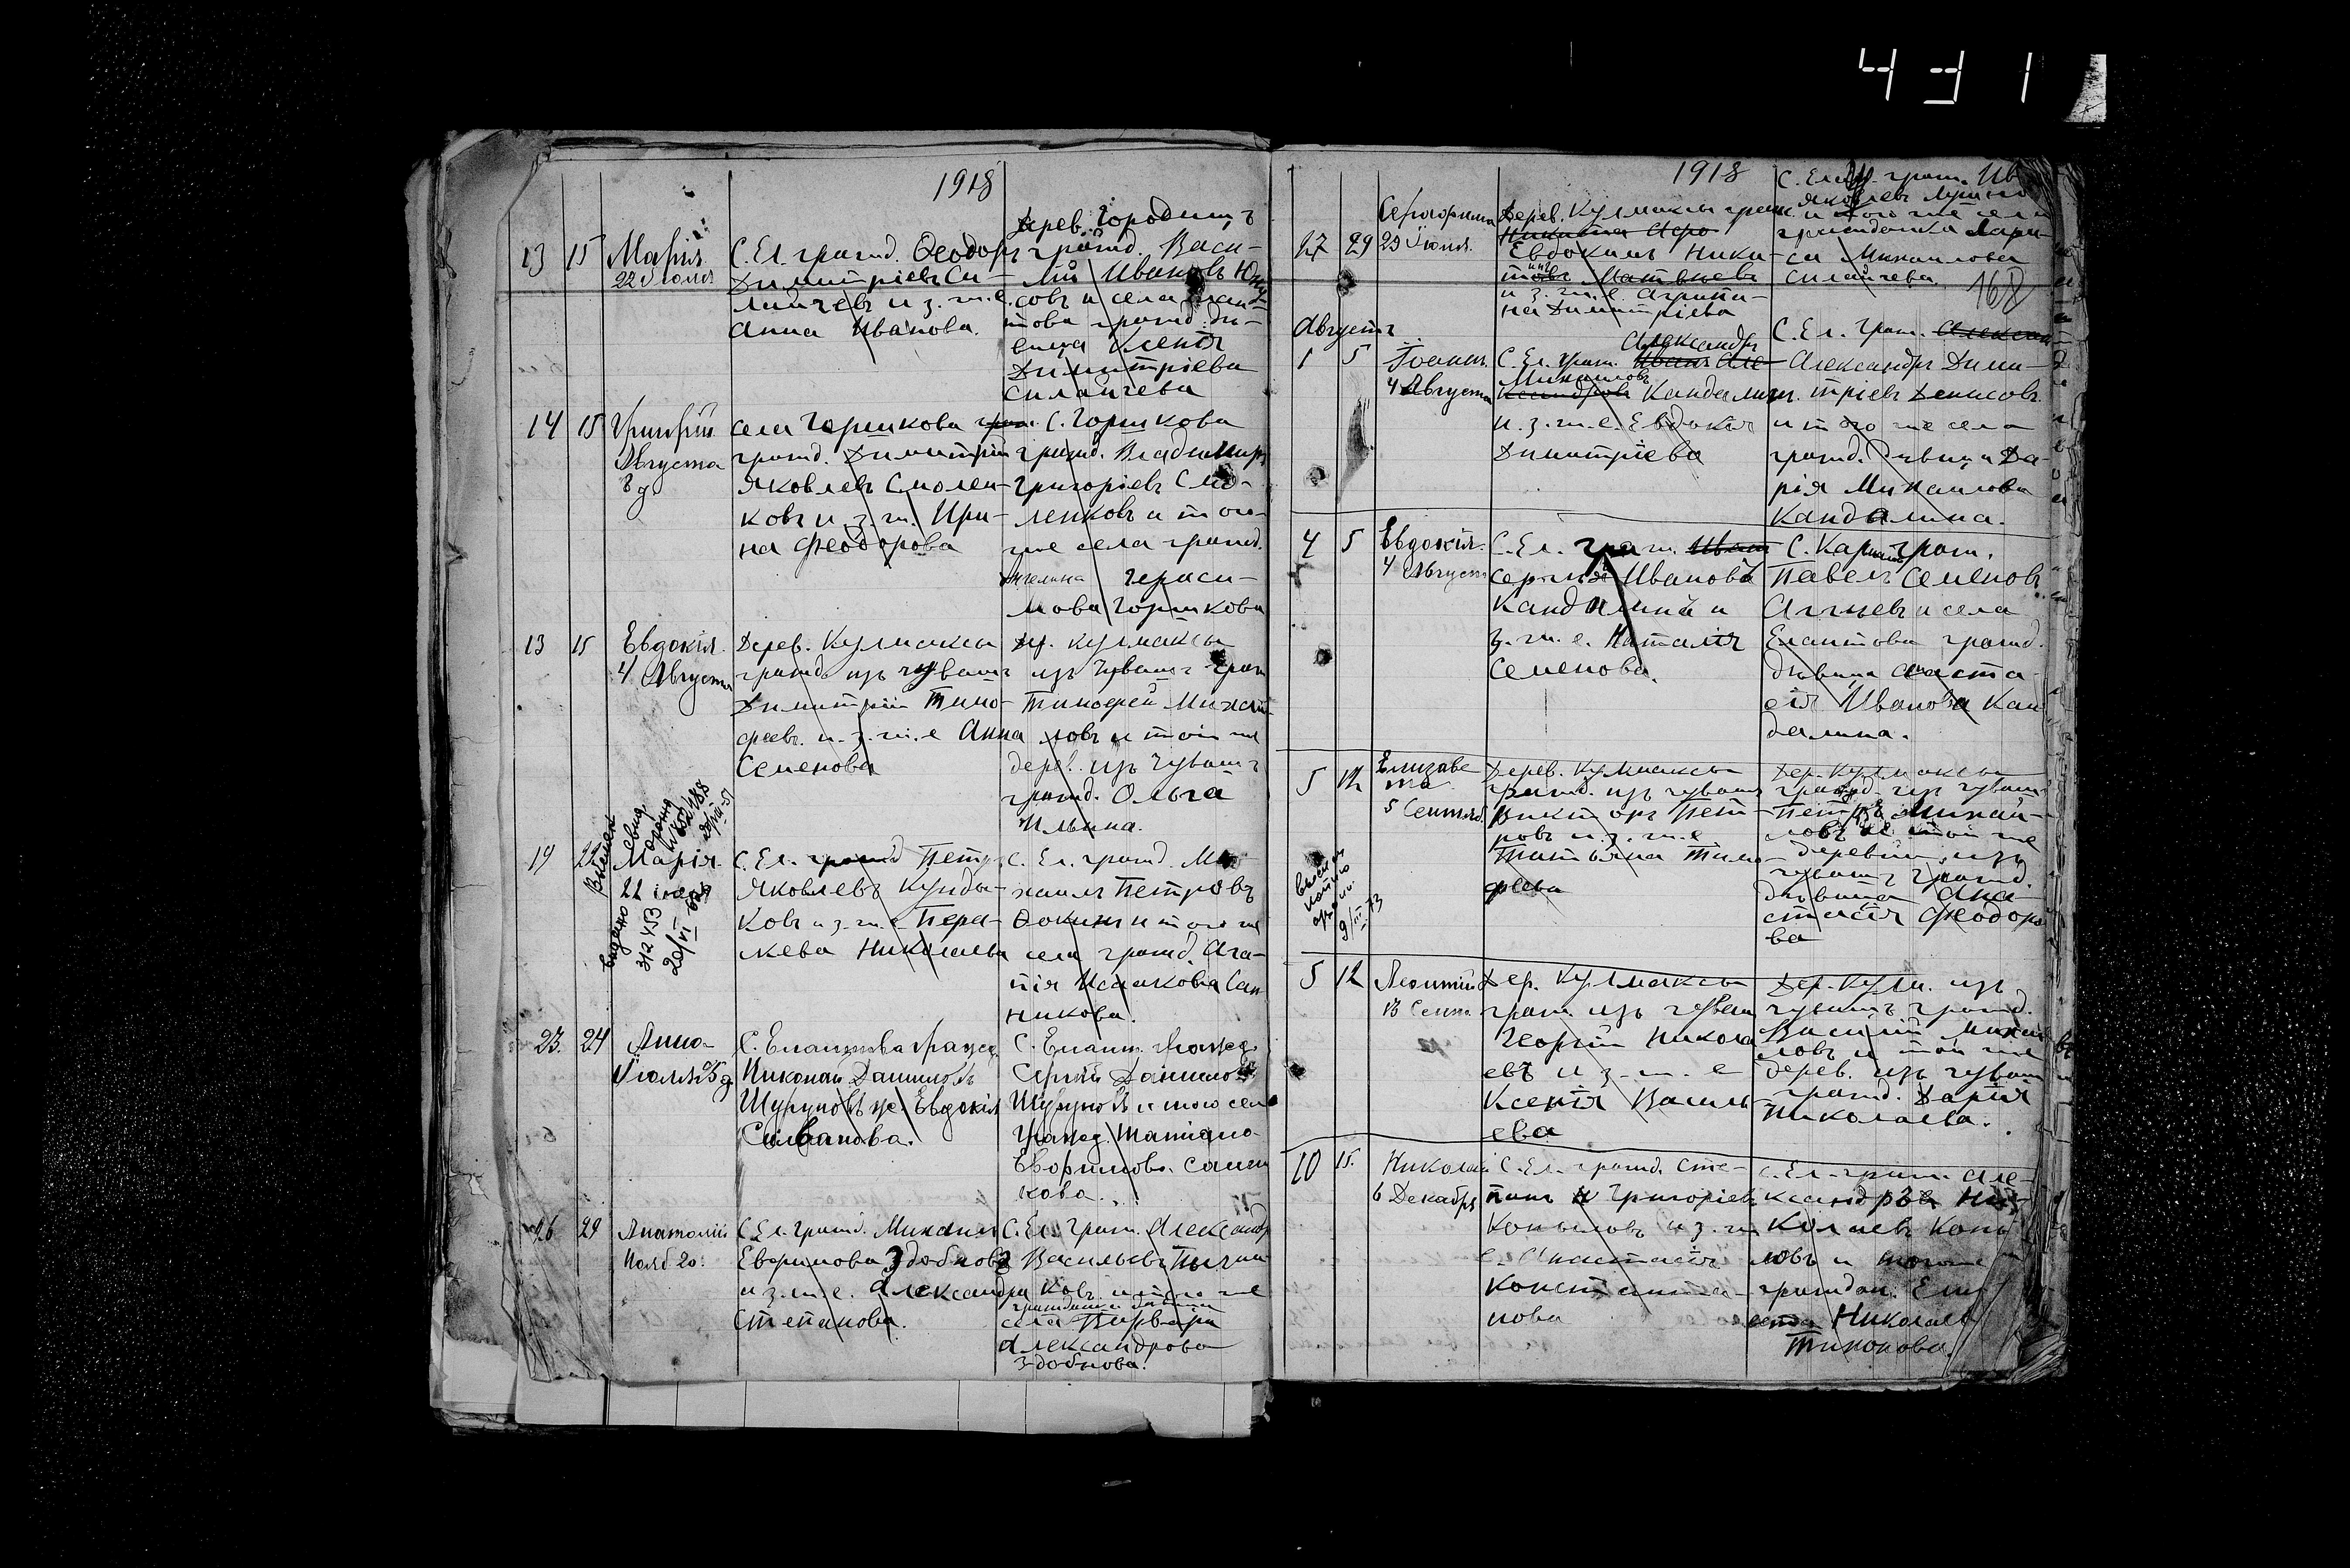 431
1918
13 15 Марія
22 Іюля
С. Ел. гражд. Ѳеодоръ
Димитріевъ Си-
лантчевъ и з. ж. е.
Анна Иванова.
Дерев. Городищъ
гражд. Васи-
лій Ивановъ
совъ и села Елан-
това гражд. дѣ-
вица Ксенія
Димитріева
Силантчева
14 15 Григорій
Августа
8 д
села Горшкова
гражд. Димитрій
Яковлевъ Смолен-
ковъ и з. ж. Ири-
на Феодорова
С. Горшкова
гражд. Владиміръ
Григоріевъ Смо-
ленковъ и того
же села гражд.
Ангелина Гераси-
мова Горшкова
13 15 Евдокія
4 Августа
Дерев. Кулмаксы
гражд. изъ чувашъ
Димитрій Тимо-
феевъ и. з. ж. е Анна
Семенова
др. Кулмаксы
изъ Чувашъ граж
Тимофей Михаи-
ловъ и той же
дерев. изъ Чувашъ
гражд. Ольга
Ильина.
19 22 Марія
22
С. Ел. гражд Петръ
Яковлевъ Кунды-
ковъ и з. ж. е Пера-
скева Николаева
С. Ел. гражд. Ми-
хаилъ Петровъ
Фокинъ и того же
села гражд. Ага-
пія Исаакова Сан
никова.
23. 24 Анна
Іюля 25 д
С. Елантова Гражд.
Николай Даниловъ
Шуруновъ ж. Евдокія
Силванова.
С. Елант. Гражд.
Сергій Даниловъ
Шуруновъ и того села
Гражд. Татіана
Евфимова. Санни
кова.
26 29 Анатолій
Нояб 20.
С. Ел. гражд. Михаилъ
Евфимова Здобновъ
и з. ж. е. Александра
Степанова.
С. Ел. Граж. Александръ
Васильевъ
ковъ и того же
гражданка дѣвица
села Варвара
Александрова
Здобнова.
1918
27 29 Серафима
23 Іюля.
Дерев. Кулмаксы граж.
Никита
Евдокимъ Ники-
тинъ Матвѣевъ
и з. ж. е. Агрипи-
на Димитріева
С. Ел. граж. Ив
Яковлевъ
и того же села
гражданка Лари-
са Михаилова
Силантчева.
168
Августъ
1 5 Іоаннъ
4 Августа
Александръ
С. Ел. Граж. Иванъ Але-
Михаиловъ
ксандровъ Кандалинъ.
и. з. ж. е. Евдокія
Димитріева
С. Ел. Граж. Алексан
Александръ Дими-
тріевъ Денисовъ
и того же села
гражд. дѣвица Да-
рія Михаилова
Кандалина.
4 5 Евдокія
4 Август
С. Ел. граж. Иван
Сергія Иванова
Кандалинъ и
з. ж. е. Наталія
Семенова.
С. граж.
Павелъ Семеновъ
Агѣевъ и села
Елантова гражд.
дѣвица Анаста-
сія Иванова Кан
далина.
5 12 Елизаве
та
5 Сентяб.
Дерев. Кулмаксы
гражд. изъ чувашъ
Викторъ Пет-
ровъ и. з. ж. е
Татьяна Тимо-
феева
Дер. Кулмаксы
гражд. изъ чуваш.
Петръ Михай-
ловъ и той же
деревни, изъ
чувашъ гражд.
дѣвица Ана-
стасія Феодоро
ва
5 12 Леонтій
13 Сент.
Дер. Кулмаксы
граж. изъ чуваш
Георгій Никола
евъ и з. ж. е
Ксенія Василь
ева
Дер. Кулм. изъ
чувашъ гражд.
Василій Михаи
ловъ и той же
дерев. изъ чуваш
гражд. Дарія
Николаева.
10 15. Николай
6 Декабря
С. Ел. гражд. Сте-
панъ Григоріевъ
Копыловъ и з. ж
е. Анастасія
Константи-
нова
С. Ел. граж. Але-
ксандръ Ни-
колаевъ Копы
ловъ и того же
граждан. Ели
Николаев
Тихонова.